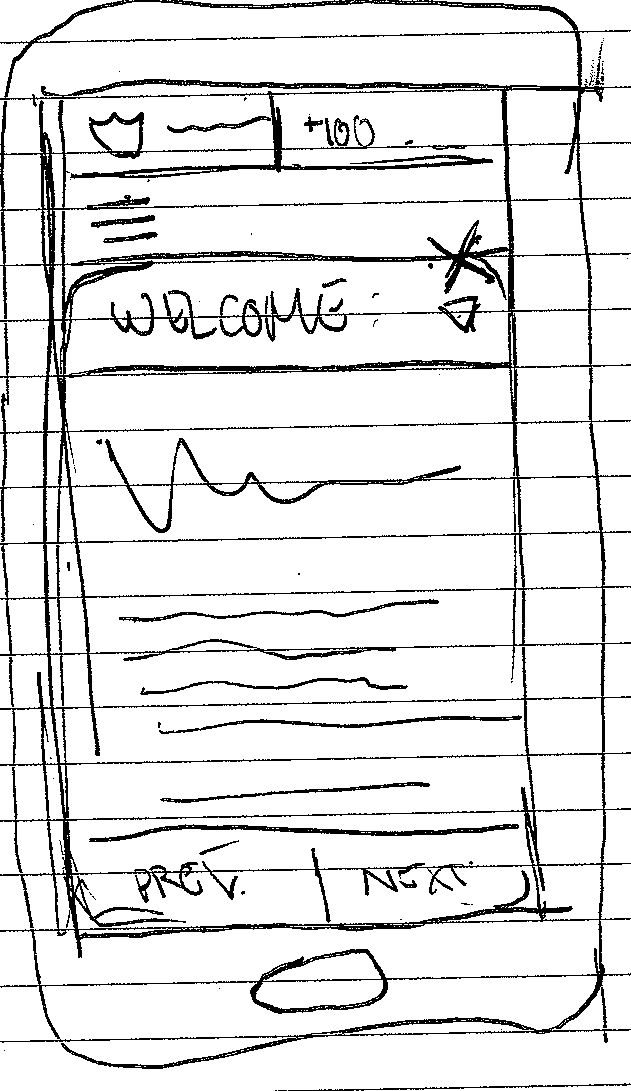 +100
WELCOME:
PREV. NEXT